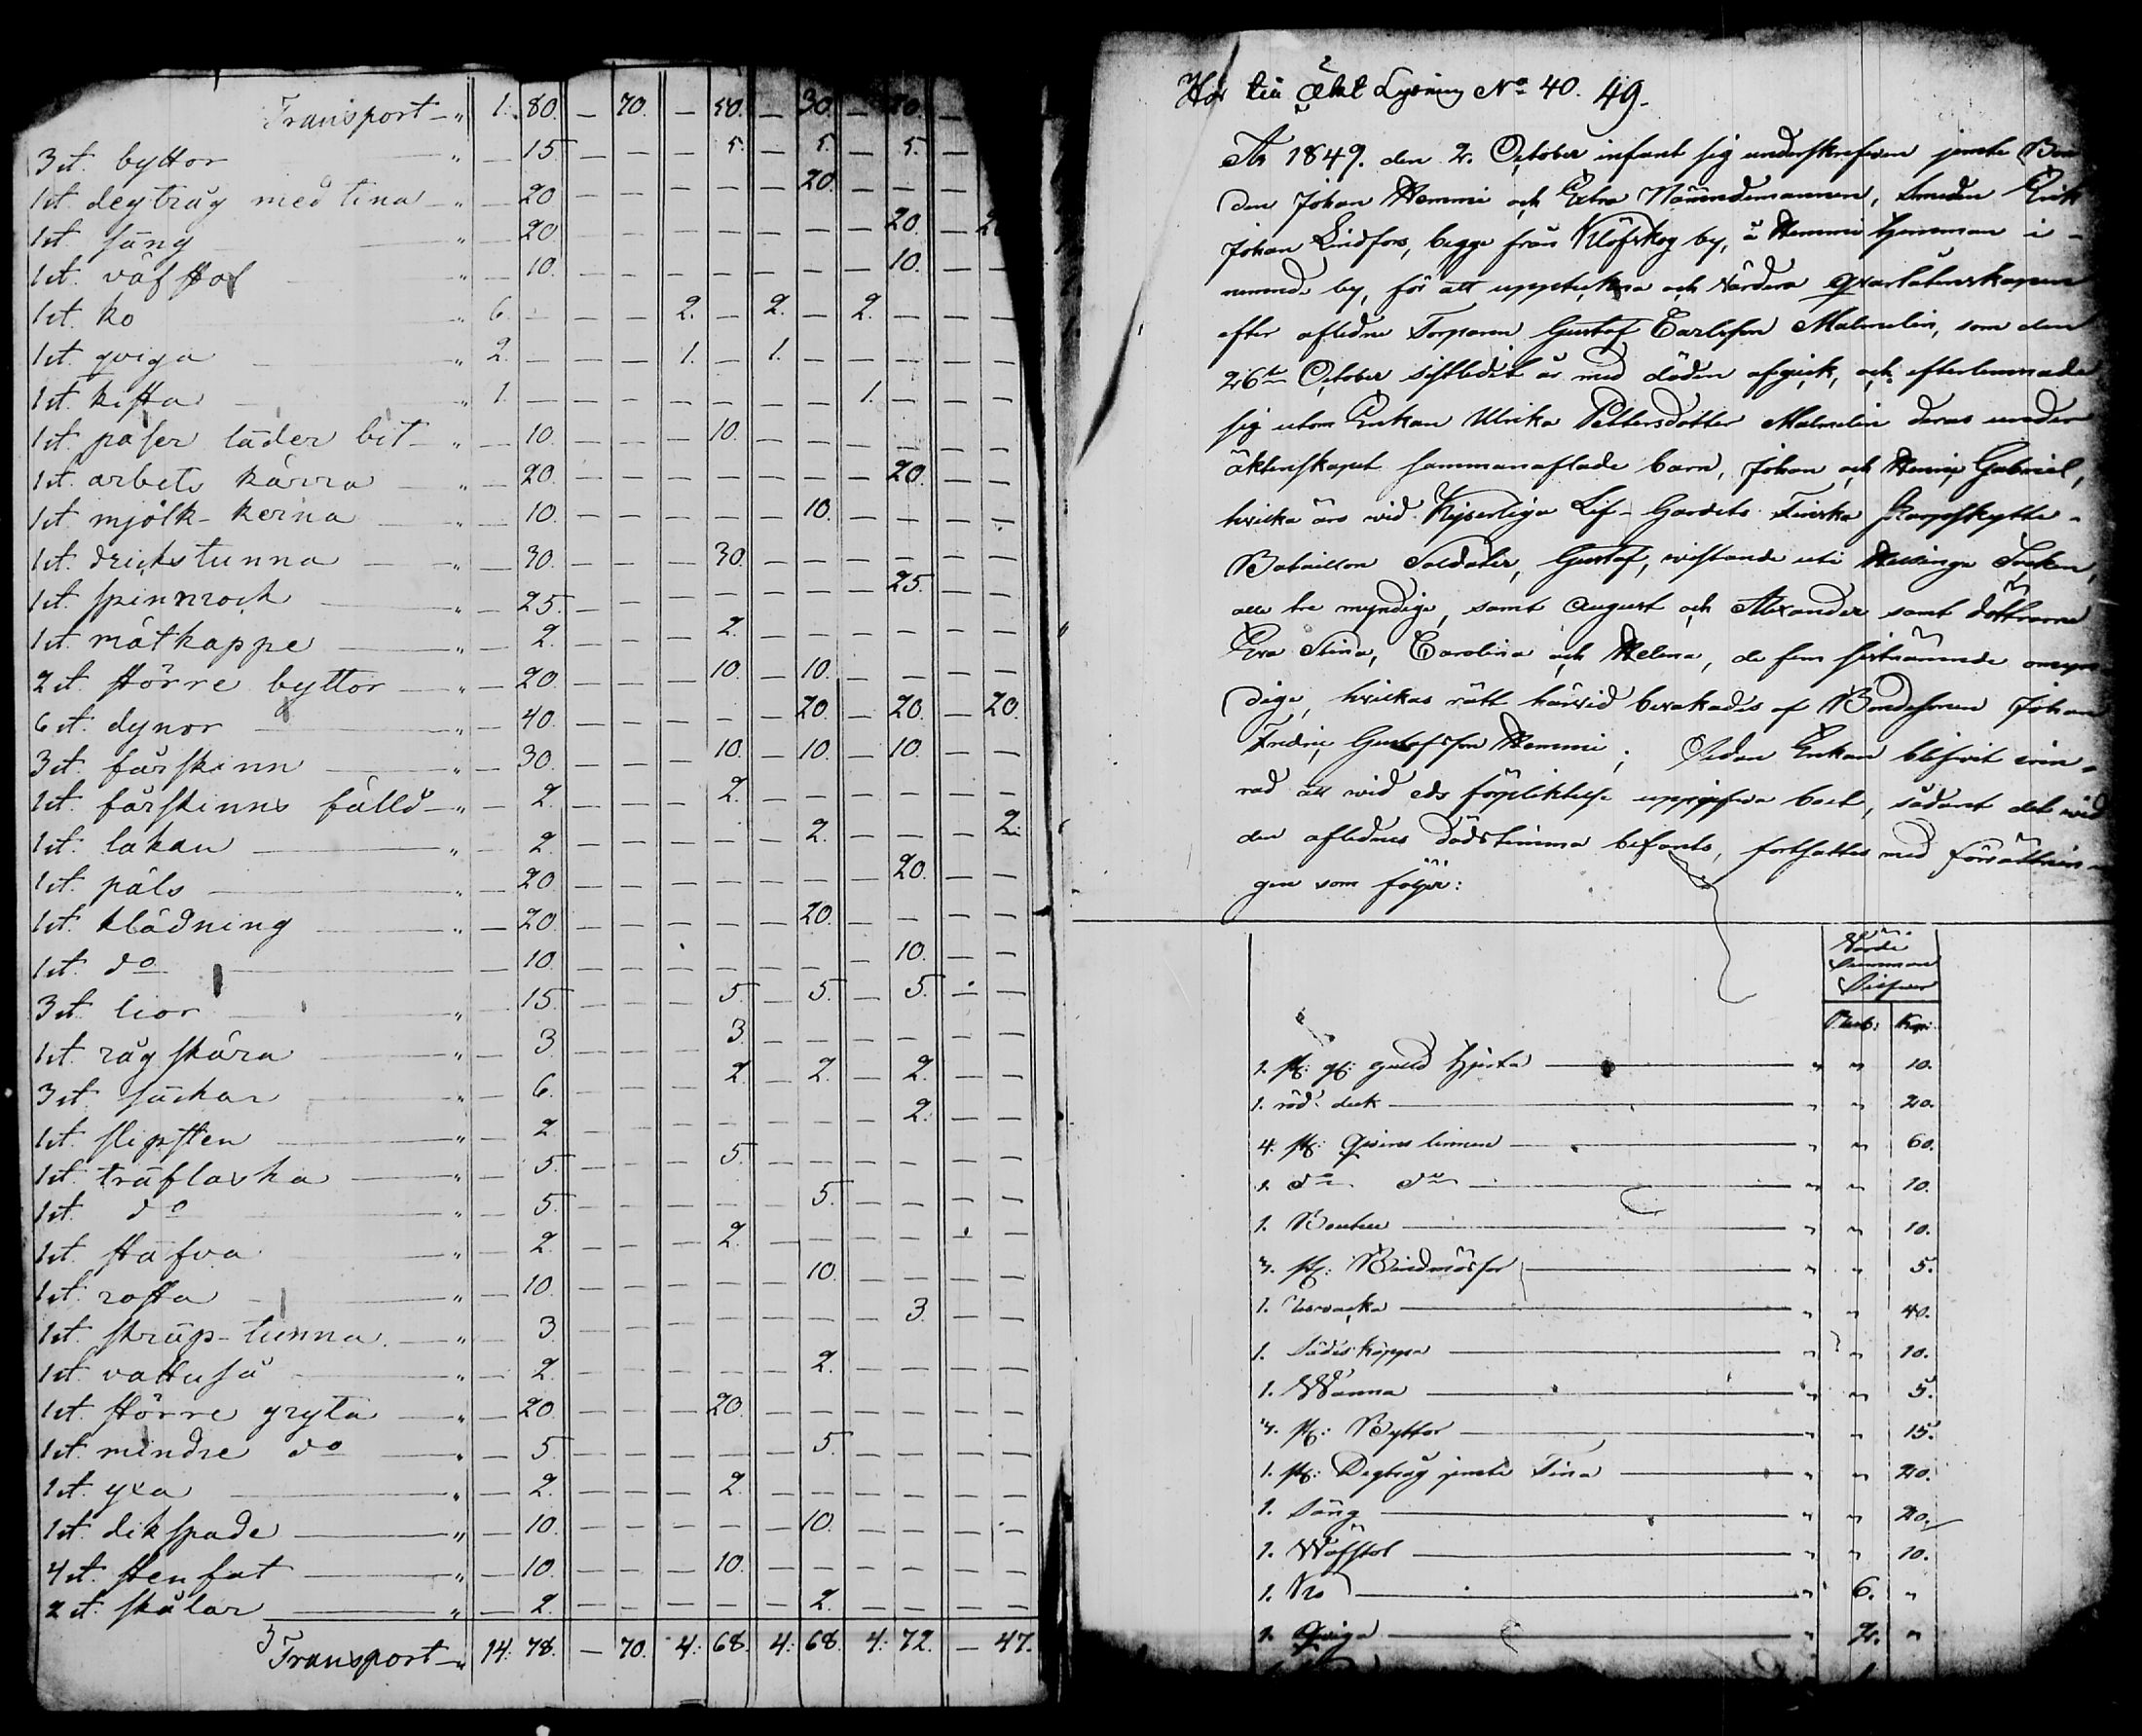 Transport — " 1. 80. — 70. — 50. — 30. — 20. —
3 st. byttor " — 15 — — — 5. — 5. — 5. — —
1 st. degtråg med tina — " — 20 — — — — — 20. — — —
1 st. säng " — 20. — — — — — — — 20. — 20
1 st. väfstol " — 10. — — — — — — — 10. — —
1 st. ko " 6. — — — 2. — 2. — 2. — — —
1 st. qviga " 2. — — — 1. — 1. — — — — —
1 st. kista " 1. — — — — — — — 1. — — —
1 st. paser läder bit — " — 10. — — — 10. — — — — — —
1 st. arbets kärra — " — 20. — — — — — — — 20. — —
1 st. mjölk-kerna — " — 10. — — — — — 10. — — — —
1 st. drickstunna — " — 30. — — — 30. — — — — — —
1 st. spinnrock — " — 25. — — — — — — — 25. — —
1 st. måtkappe — " — 2. — — — 2. — — — — — —
2 st. större byttor — " — 20. — — — 10. — 10. — — — —
6 st. dynor " — 40. — — — — — 20. — 20. — 20.
3 st. fårskinn — " — 30. — — — 10. — 10. — 10. — —
1 st. fårskinns fälld — " — 2. — — — 2. — — — — — —
1 st. lakan — " — 2. — — — — — 2. — — — 2.
1 st. päls — " — 20 — — — — — — — 20. — —
1 st. klädning — " — 20. — — — — — 20. — — — —
1 st. do — — 10. — — — — — — — 10. — —
3 st. lior " — 15 — — — 5. — 5. — 5. — —
1 st. rågskära — " — 3. — — — 3. — — — — — —
3 st. säckar — " — 6. — — — 2. — 2. — 2. — —
1 st. slipsten — " — 2. — — — — — — — 2. — —
1 st. träflaska — " — 5. — — — 5. — — — — — —
1 st. do " — 5. — — — — — 5. — — — —
1 st. stäfva " — 2. — — — 2. — — — — — —
1 st. " — 10. — — — — — 10. — — — —
1 st. skräp-tunna. — " — 3. — — — — — — — 3. — —
1 st. vattuså " — 2. — — — — — 2. — — — —
1 st. större gryta — " — 20. — — — 20. — — — — — —
1 st. mindre do — " — 5. — — — — — 5. — — — —
1 st. yxa — " — 2. — — — 2. — — — — — —
1 st. dikspade — " — 10. — — — — — 10. — — — —
4 st. stenfat — " — 10. — — — 10. — — — — — —
2 st. skålar — " — 2. — — — — — 2. — — — —
Transport — " 14: 78. — 70. 4: 68. 4: 68. 4: 72. — 47.
Hör till Äkt Lysning No 40. 49.
År 1849. den 2. October infant sig underskrefven jemte Bon
den Johan Hemmi och Extra Nämndemannen, Smeden Erik
Johan Lindfors, begge från Klöfskog by, å Hemmi hemman i
nemnde by, för att uppteckna och värdera qvarlåtenskapen
efter aflidne Torparen Gustaf Carlsson Malmelin, som den
26te October sistledit år med döden afgick, och efterlemnade
sig utom Enkan Ulrika Pettersdotter Malmelin deras under
äktenskapet sammanaflade barn, Johan och Gabriel,
hvilka äro vid Kejserliga Lif-Gardets Finska Skarpskytte-
Bataillon Soldater, Gustaf, vistande uti Helsinge Socken,
alla tre myndige, samt August och Alexander samt döttrarne
Eva Stina, Carolina och Helena, de fem sistnämnde omyn
dige, hvilkas rätt härvid bevakades af Bondesonen Johan
Fredric Gustafsson Hemmi; Sedan Enkan blifvit erin-
rad att vid eds förpliktelse uppgifva boet, sådant det vid
den aflidnes dödstimma befants, fortsattes med förrättnin-
gen som följer:
Värde
Summan
Silfver
Rub: Kop:
1. st: guld hjerta — " " 10.
1. röd duk — " " 20.
4. st: Qvins linnen — " " 60.
1. do do — " " 10.
1. — " " 10.
3. st: Bindmössor — " " 5.
1. — " " 40.
1. Sädeskappa — " " 10.
1. Wanna — " " 5.
3. st: Byttor — " " 15.
1. st: Degtråg jemte Tina — " " 20.
1. Säng — " " 20.
1. Wäfstol — " " 10.
1. Ko — " 6. "
1. Qviga — " 2. "